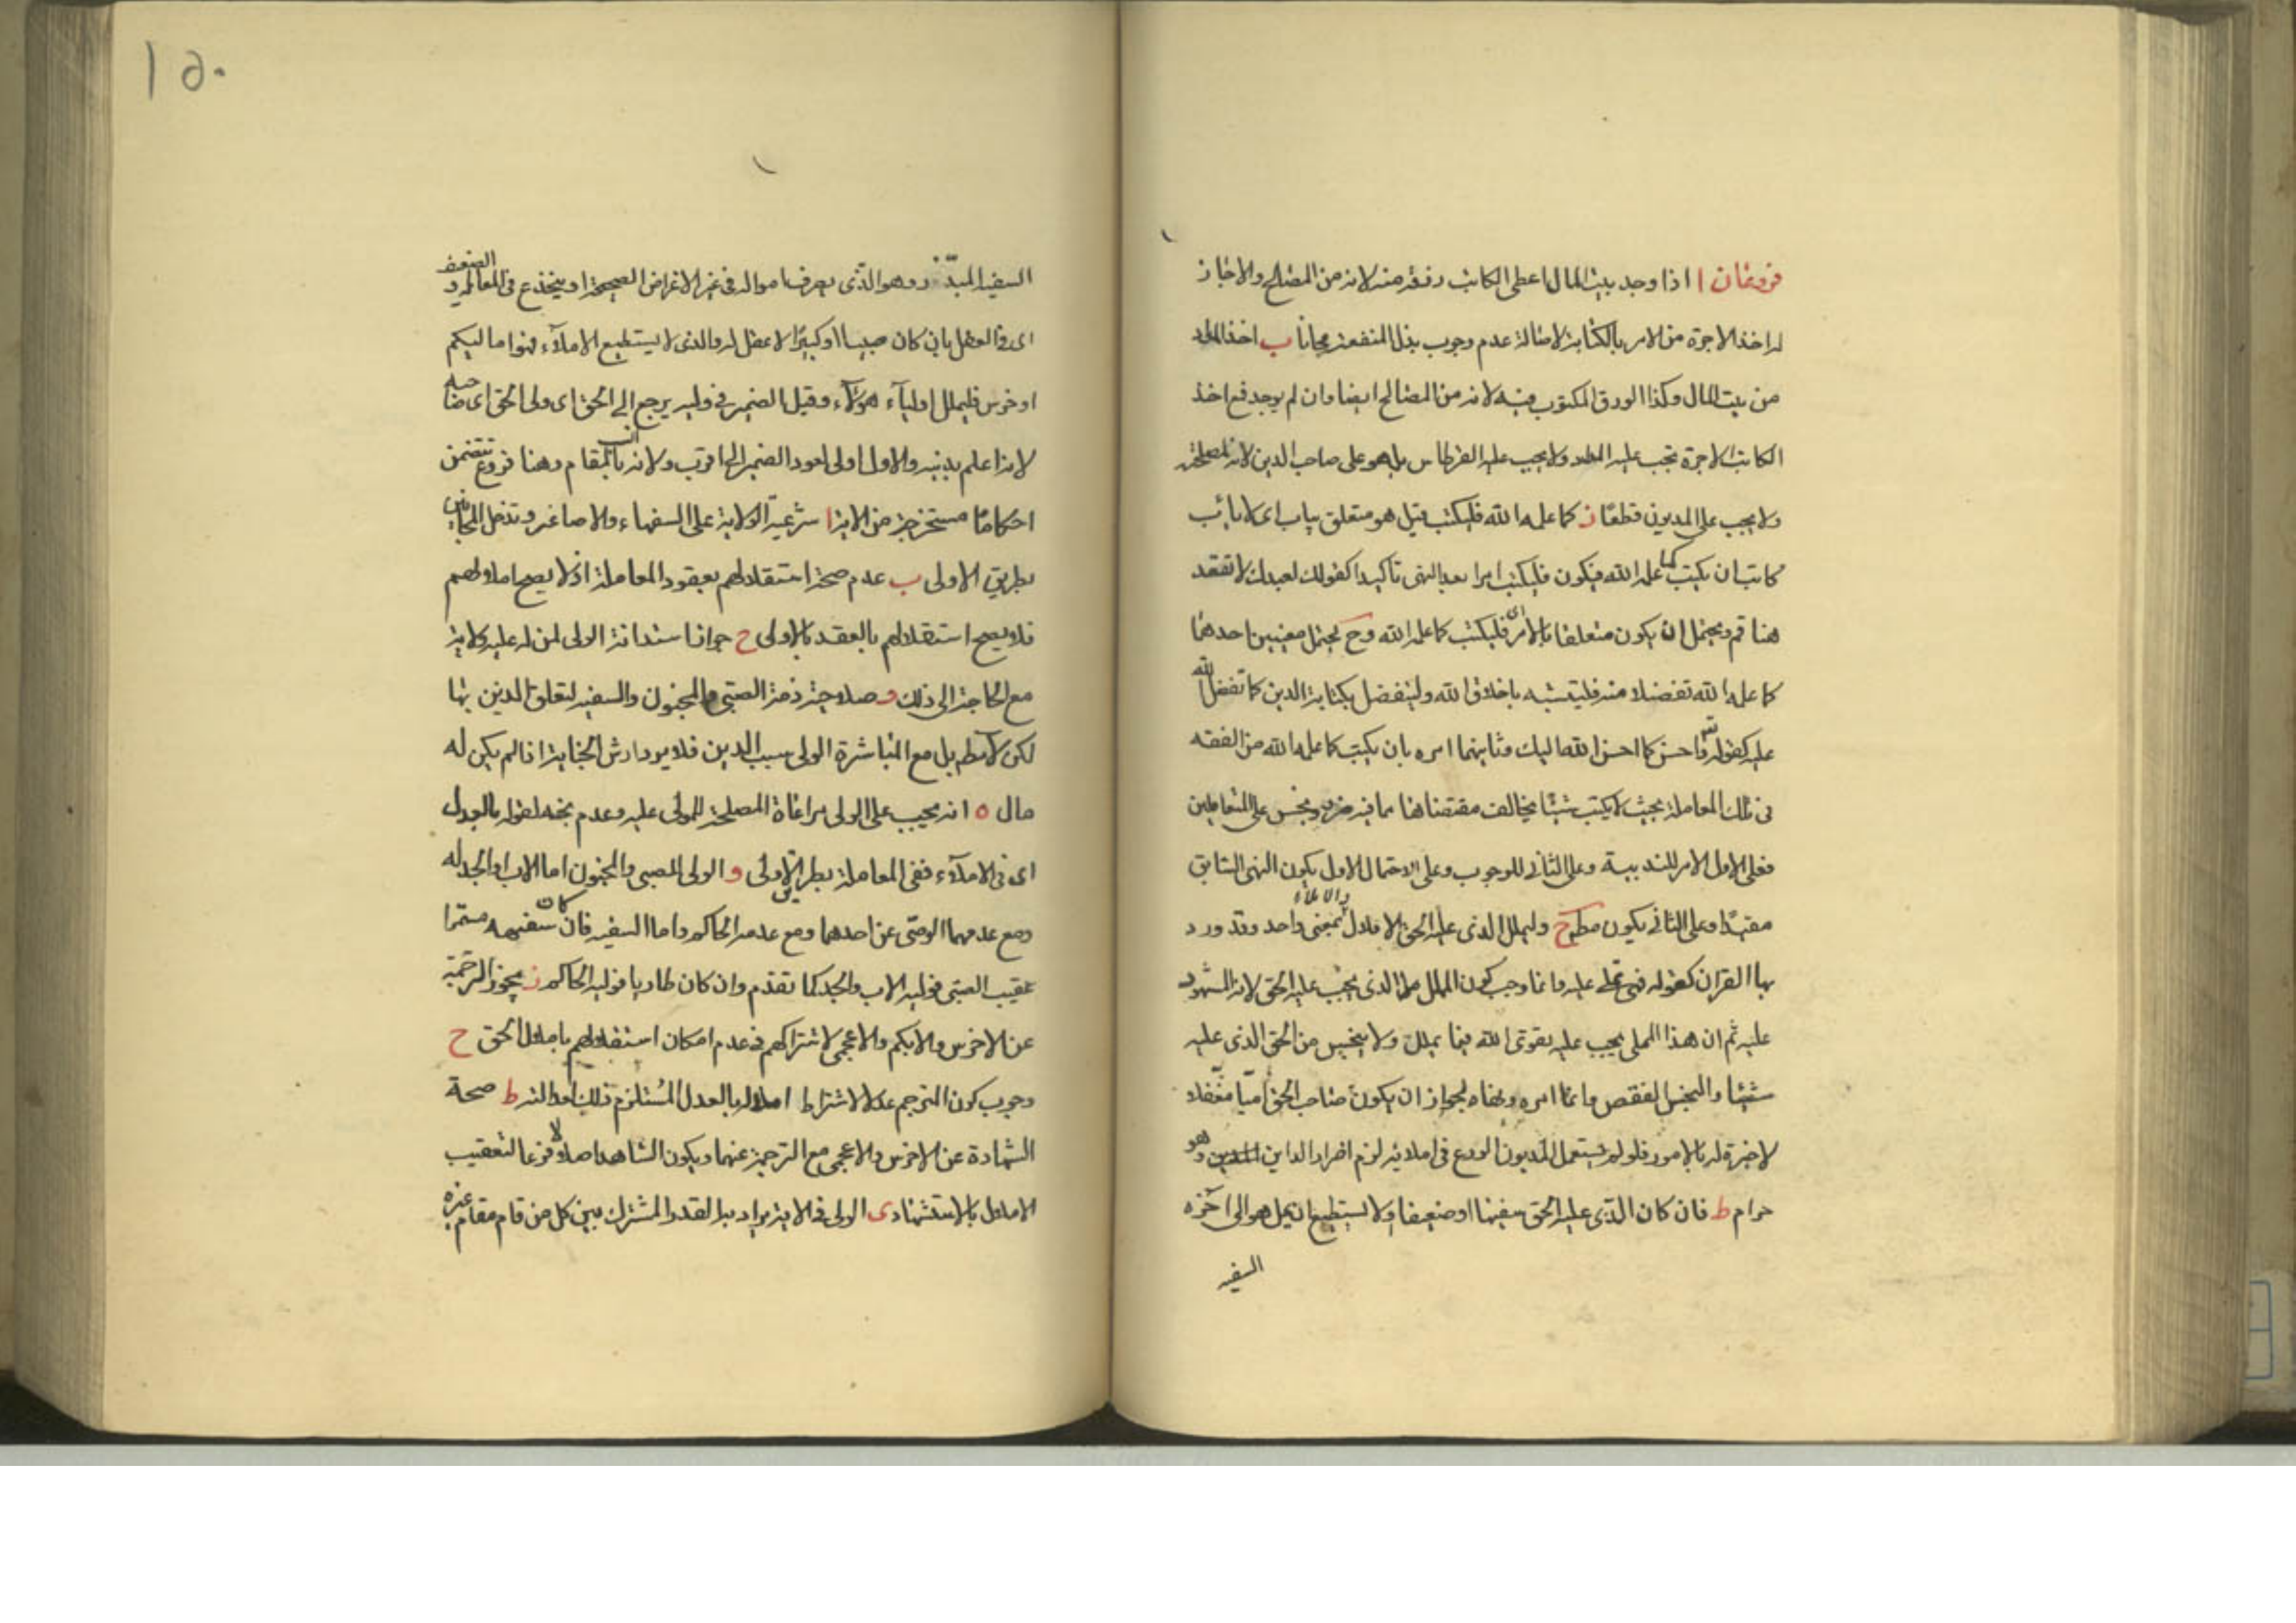 فروعان ا اذا وجد بيت المال اعطى الكاتب رزقه منه لانه من المصالح والا جاز
له اخذ الاجرة من الامر بالكتابة لاصالة عدم وجوب بذل المنفعة مجانا ب اخذ المداد
من بيت المال وكذا الورق المكتوب فيه لانه من المصالح ايضا وان لم يوجد فمع اخذ
الكاتب الاجرة يجب عليه المداد ولا يجب عليه القرطاس بل هو على صاحب الدين لانه لمصلحته
ولا يجب على المديون قطعا ز كما علمه الله فليكتب قيل هو متعلق بياب اى لا يأب
كاتب ان يكتب كما علمه الله فيكون فليكتب امرا بعد النهى تأكيدا كقولك لعبدك لا تقعد
هنا قم ويحتمل ان يكون متعلقا بالامر اى فليكتب كما علمه الله وح يحتمل معنيين احدهما
كما علمه الله تفضلا منه فليتشبه باخلاق الله وليتفضل بكتابة الدين كما تفضل الله
عليه كقوله تع واحسن كما احسن الله اليك وثانيهما امره بان يكتب كما علمه الله من الفقه
فى تلك المعاملة بحيث لا يكتب شيئا يخالف مقتضاها مما فيه ضرر وبخس على المتعاملين
فعلى الاول الامر للندبية وعلى الثانى للوجوب وعلى الاحتمال الاول يكون النهى السابق
مقيدا وعلى الثانى يكون مطلقا ح وليملل الذى عليه الحق الاملال والاملاء بمعنى واحد وقد ورد
بها القران كقوله فهى تملى عليه وانما وجب كون المملل هو الذى يجب عليه الحق لانه المشهود
عليه ثم ان هذا المملى يجب عليه تقوى الله فيما يملل ولا يبخس من الحق الذى عليه
شيئا والبخس النقص وانما امره ونهاه لجواز ان يكون صاحب الحق اميا مغفلا
لا خبرة له بالامور فلو لم يستعمل المديون الورع فى املائه لزم اضرار الداين وهو
حرام ط فان كان الذى عليه الحق سفيها او ضعيفا او لا يستطيع ان يمل هو الى اخره
السفيه
١٥٠
السفيه المبذر وهو الذى يصرف امواله فى غير الاغراض الصحيحة او ينخدع فى المعاملة و الضعيف
اى فى العقل بان كان صبيا او كبيرا لا عقل له والذى لا يستطيع الاملاء فهو اما لبكم
او خرس فليملل اولياء هؤلاء وقيل الضمير فى وليه يرجع الى الحق اى ولى الحق اى صاحبه
لانه اعلم بدينه والاول اولى لعود الضمير الى اقرب ولانه انسب بالمقام وهنا فروع تتضمن
احكاما مستخرجة من الاية ا شرعية الولاية على السفهاء والاصاغر وتدخل المجانين
بطريق الاولى ب عدم صحة استقلالهم بعقود المعاملة اذ لا يصح املاؤهم
فلا يصح استقلالهم بالعقد بالاولى ج جواز استدانة الولى لمن له عليه ولاية
مع الحاجة الى ذلك د صلاحية ذمة الصبى والمجنون والسفيه لتعلق الدين بها
لكن لا مط بل مع المباشرة الولى سبب الدين فلا يرد ارش الجناية اذا لم يكن له
مال ه انه يجب على الولى مراعاة المصلحة للمولى عليه وعدم بخسه لقوله بالعدل
اى فى الاملاء ففى المعاملة بطريق الاولى و الولى للصبى والمجنون اما الاب او الجد له
ومع عدمهما الوصى عن احدهما ومع عدمه الحاكم واما السفيه فان كان سفهه مستمرا
عقيب الصبى فوليه الاب والجد كما تقدم وان كان طاريا فوليه الحاكم ز يجوز الترجمة
عن الاخرس والابكم والاعجمى لاشتراكهم فى عدم امكان استقلالهم باملال الحق ح
وجوب كون المترجم عدلا لاشتراط املاله بالعدل المستلزم ذلك ط صحة
الشهادة عن الاخرس والاعجمى مع الترجمة عنهما ويكون الشاهد اصلا لا فرعا لتعقيب
الاملال بالاستشهاد ى الولى فى الاية يراد به القدر المشترك بين كل من قام مقام غيره